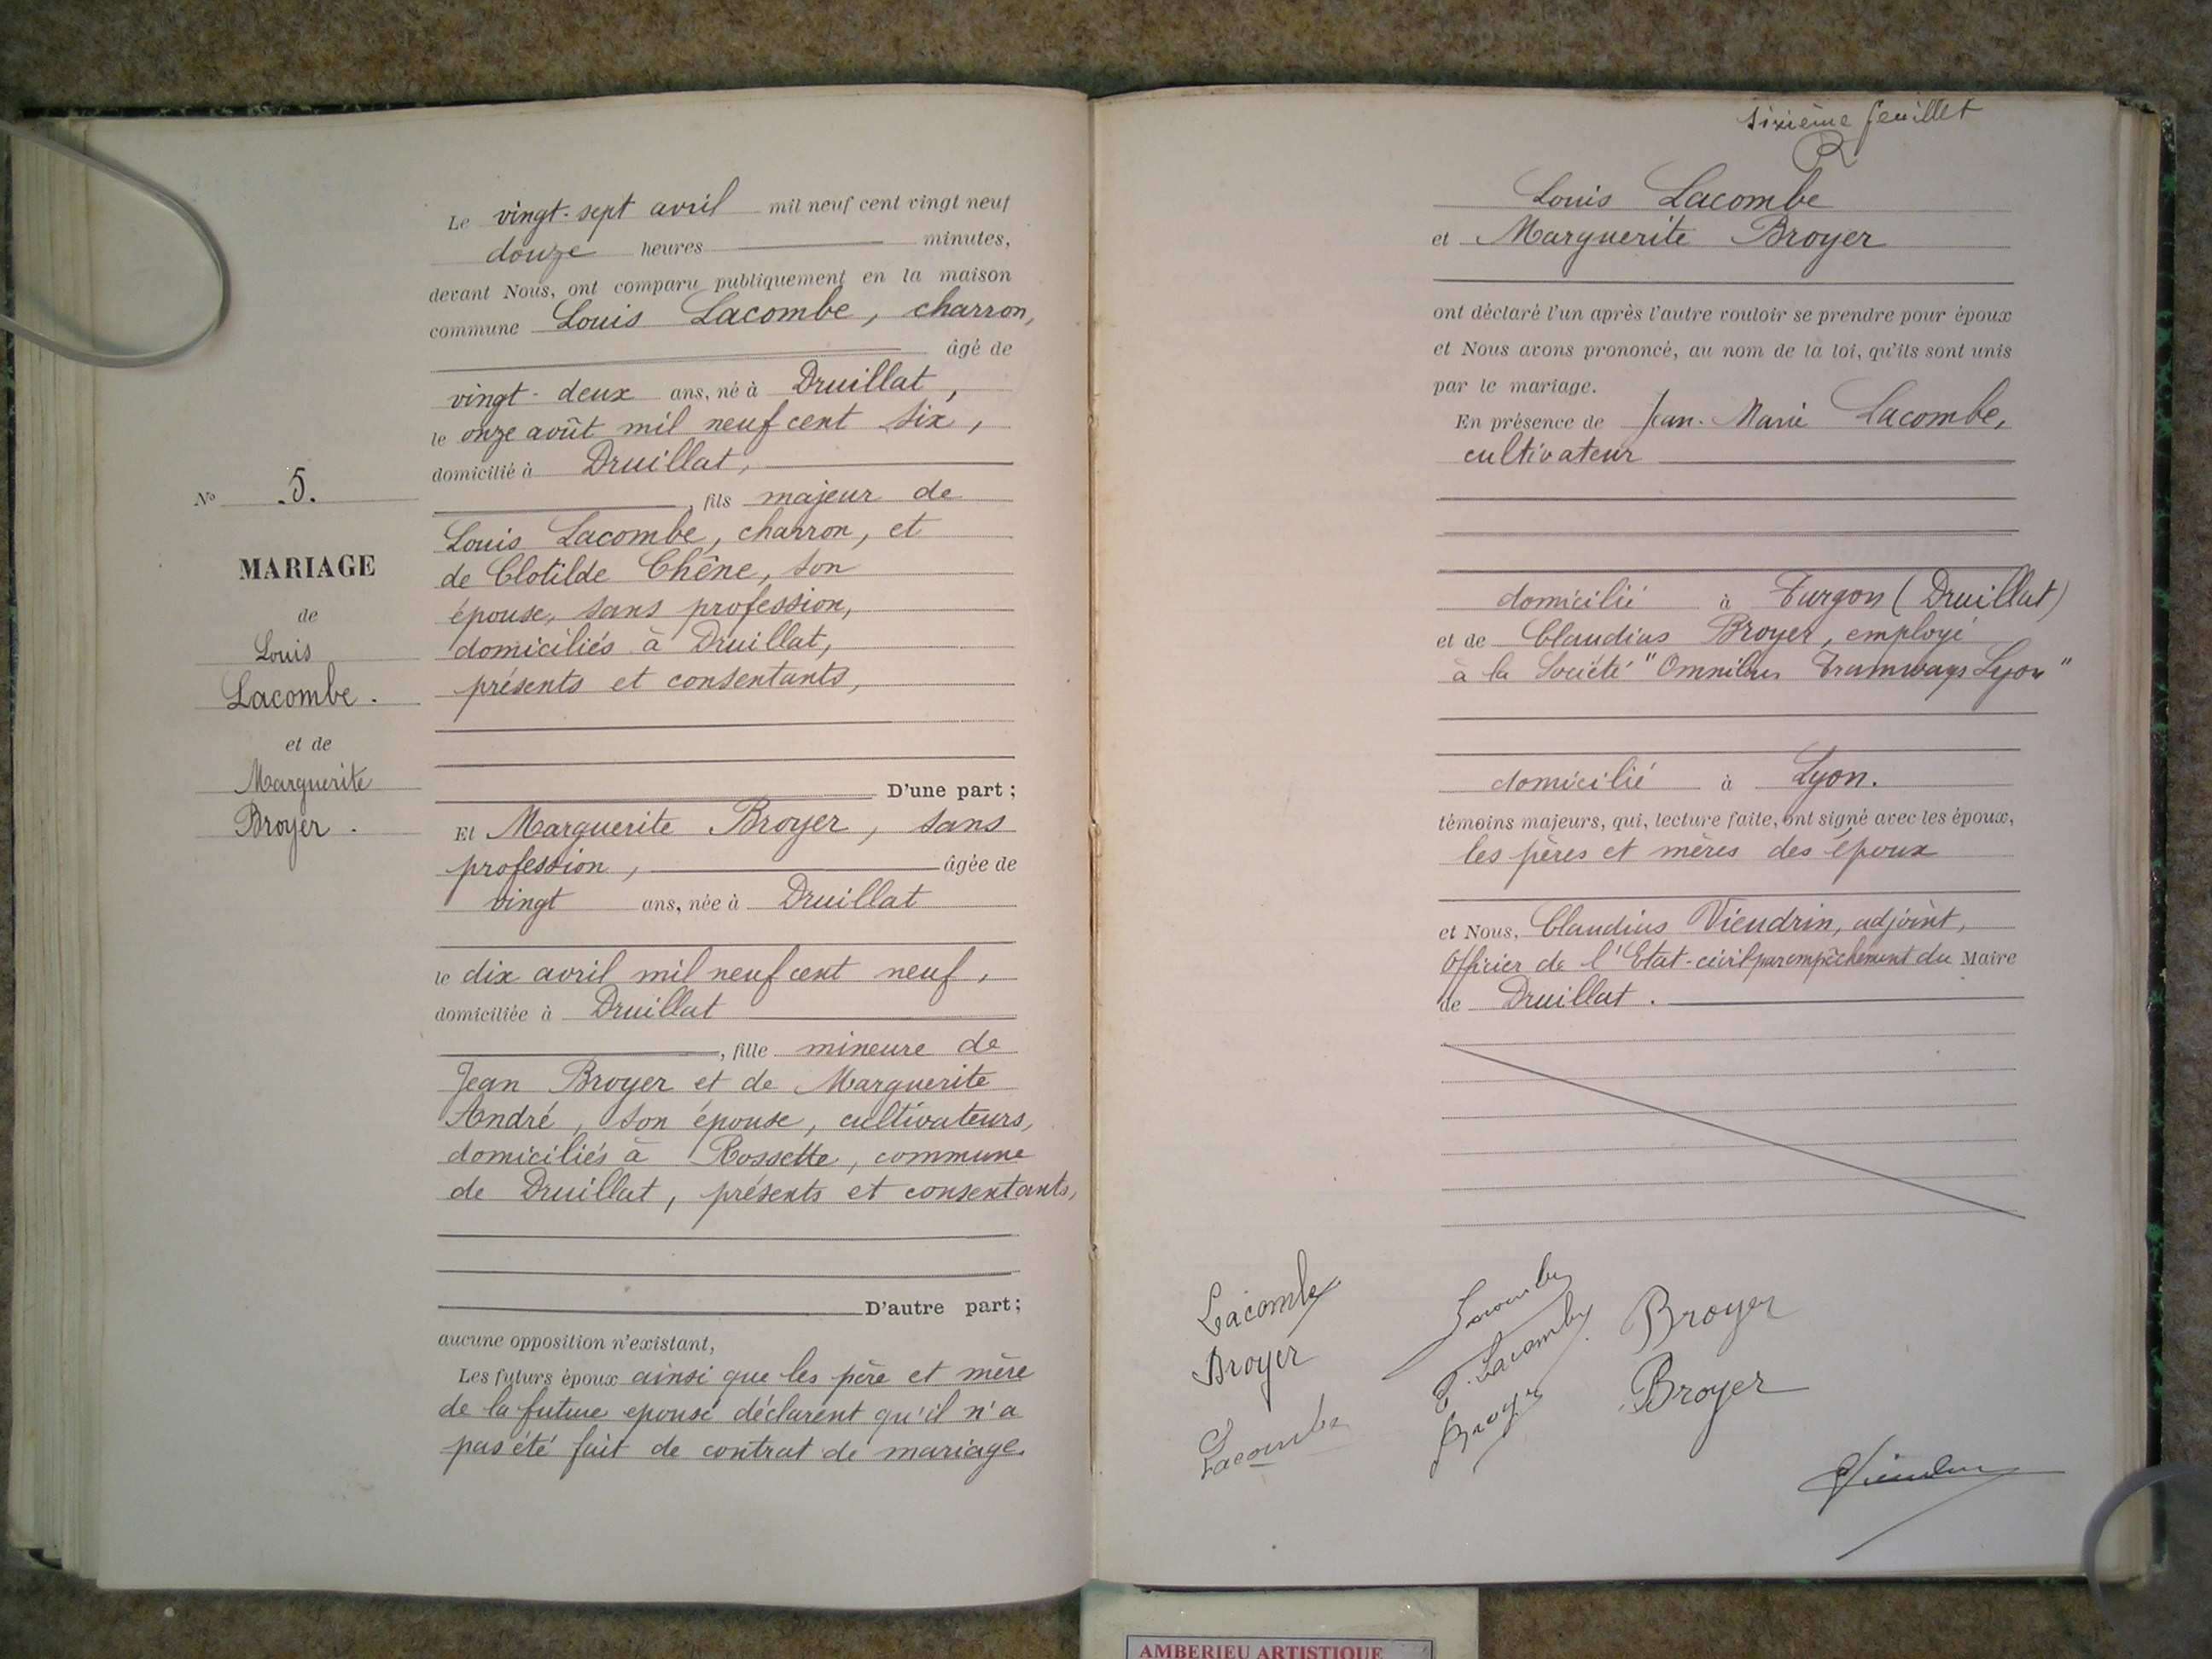 Le vingt-sept avril mil neuf cent vingt neuf
douze heures minutes,
devant Nous, ont comparu publiquement en la maison
commune Louis Lacombe, charron,
âgé de
vingt-deux ans, né à Druillat,
le onze août mil neuf cent six,
domicilié à Druillat,
, fils majeur de
Louis Lacombe, charron, et
de Clotilde Chêne, son
épouse, sans profession,
domiciliés à Druillat,
présents et consentants,
D'une part;
Et Marguerite Broyer, sans
profession, âgée de
vingt ans, née à Druillat
le dix avril mil neuf cent neuf,
domiciliée à Druillat
, fille mineure de
Jean Broyer et de Marguerite
André, son épouse, cultivateurs,
domiciliés à Rossette, commune
de Druillat, présents et consentants,
D'autre part;
aucune opposition n'existant,
Les futurs époux ainsi que les père et mère
de la future epouse déclarent qu'il n'a
pas été fait de contrat de mariage.
No 5.
MARIAGE
de
Louis
Lacombe.
et de
Marguerite
Broyer.
sixième feuillet
Louis Lacombe
et Marguerite Broyer
ont déclaré l'un après l'autre vouloir se prendre pour époux
et Nous avons prononcé, au nom de la loi, qu'ils sont unis
par le mariage.
En présence de Jean-Marie Lacombe,
cultivateur
domicilié à Turgon (Druillat)
et de Claudius Broyer, employé
à la Société "Omnibus Tramways Lyon"
domicilié à Lyon.
témoins majeurs, qui, lecture faite, ont signé avec les époux,
les pères et mères des époux
et Nous, Claudius Vieudrin, adjoint,
Officier de l'Etat-civil par empêchement du Maire
de Druillat.
Lacombe
Broyer
Lacombe
Lacombe
Broyer
Broyer
Broyer
AMBERIEU ARTISTIQUE